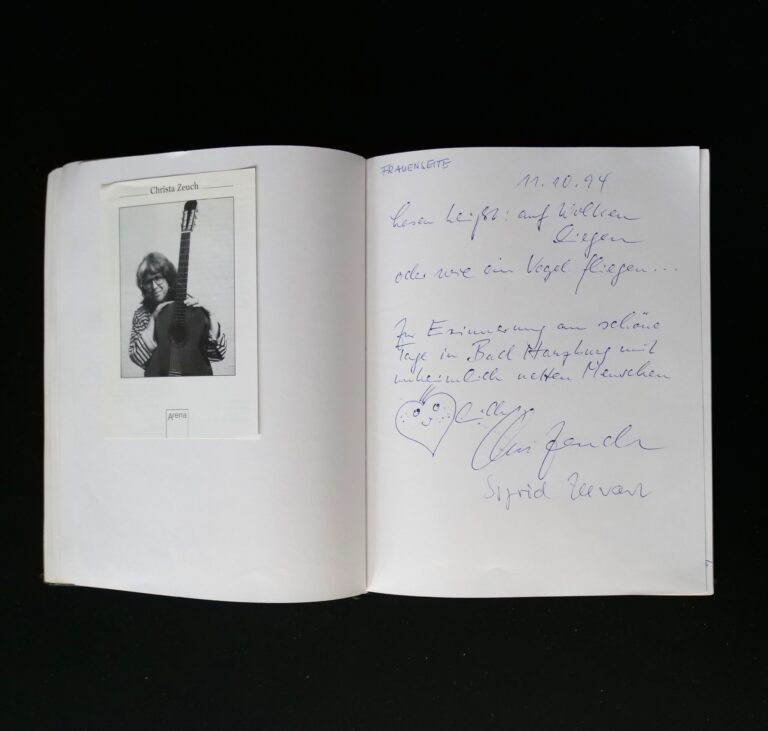 Christa Zeuch
Arena
FRAUENSEITE
11.10.94
Lesen heißt: auf Wolken
liegen
oder wie ein Vogel fliegen...
Zur Erinnerung an schöne
Tage in Bad Harzburg mit
unheimlich netten Menschen
Zeuch
Sigrid Zeevaert